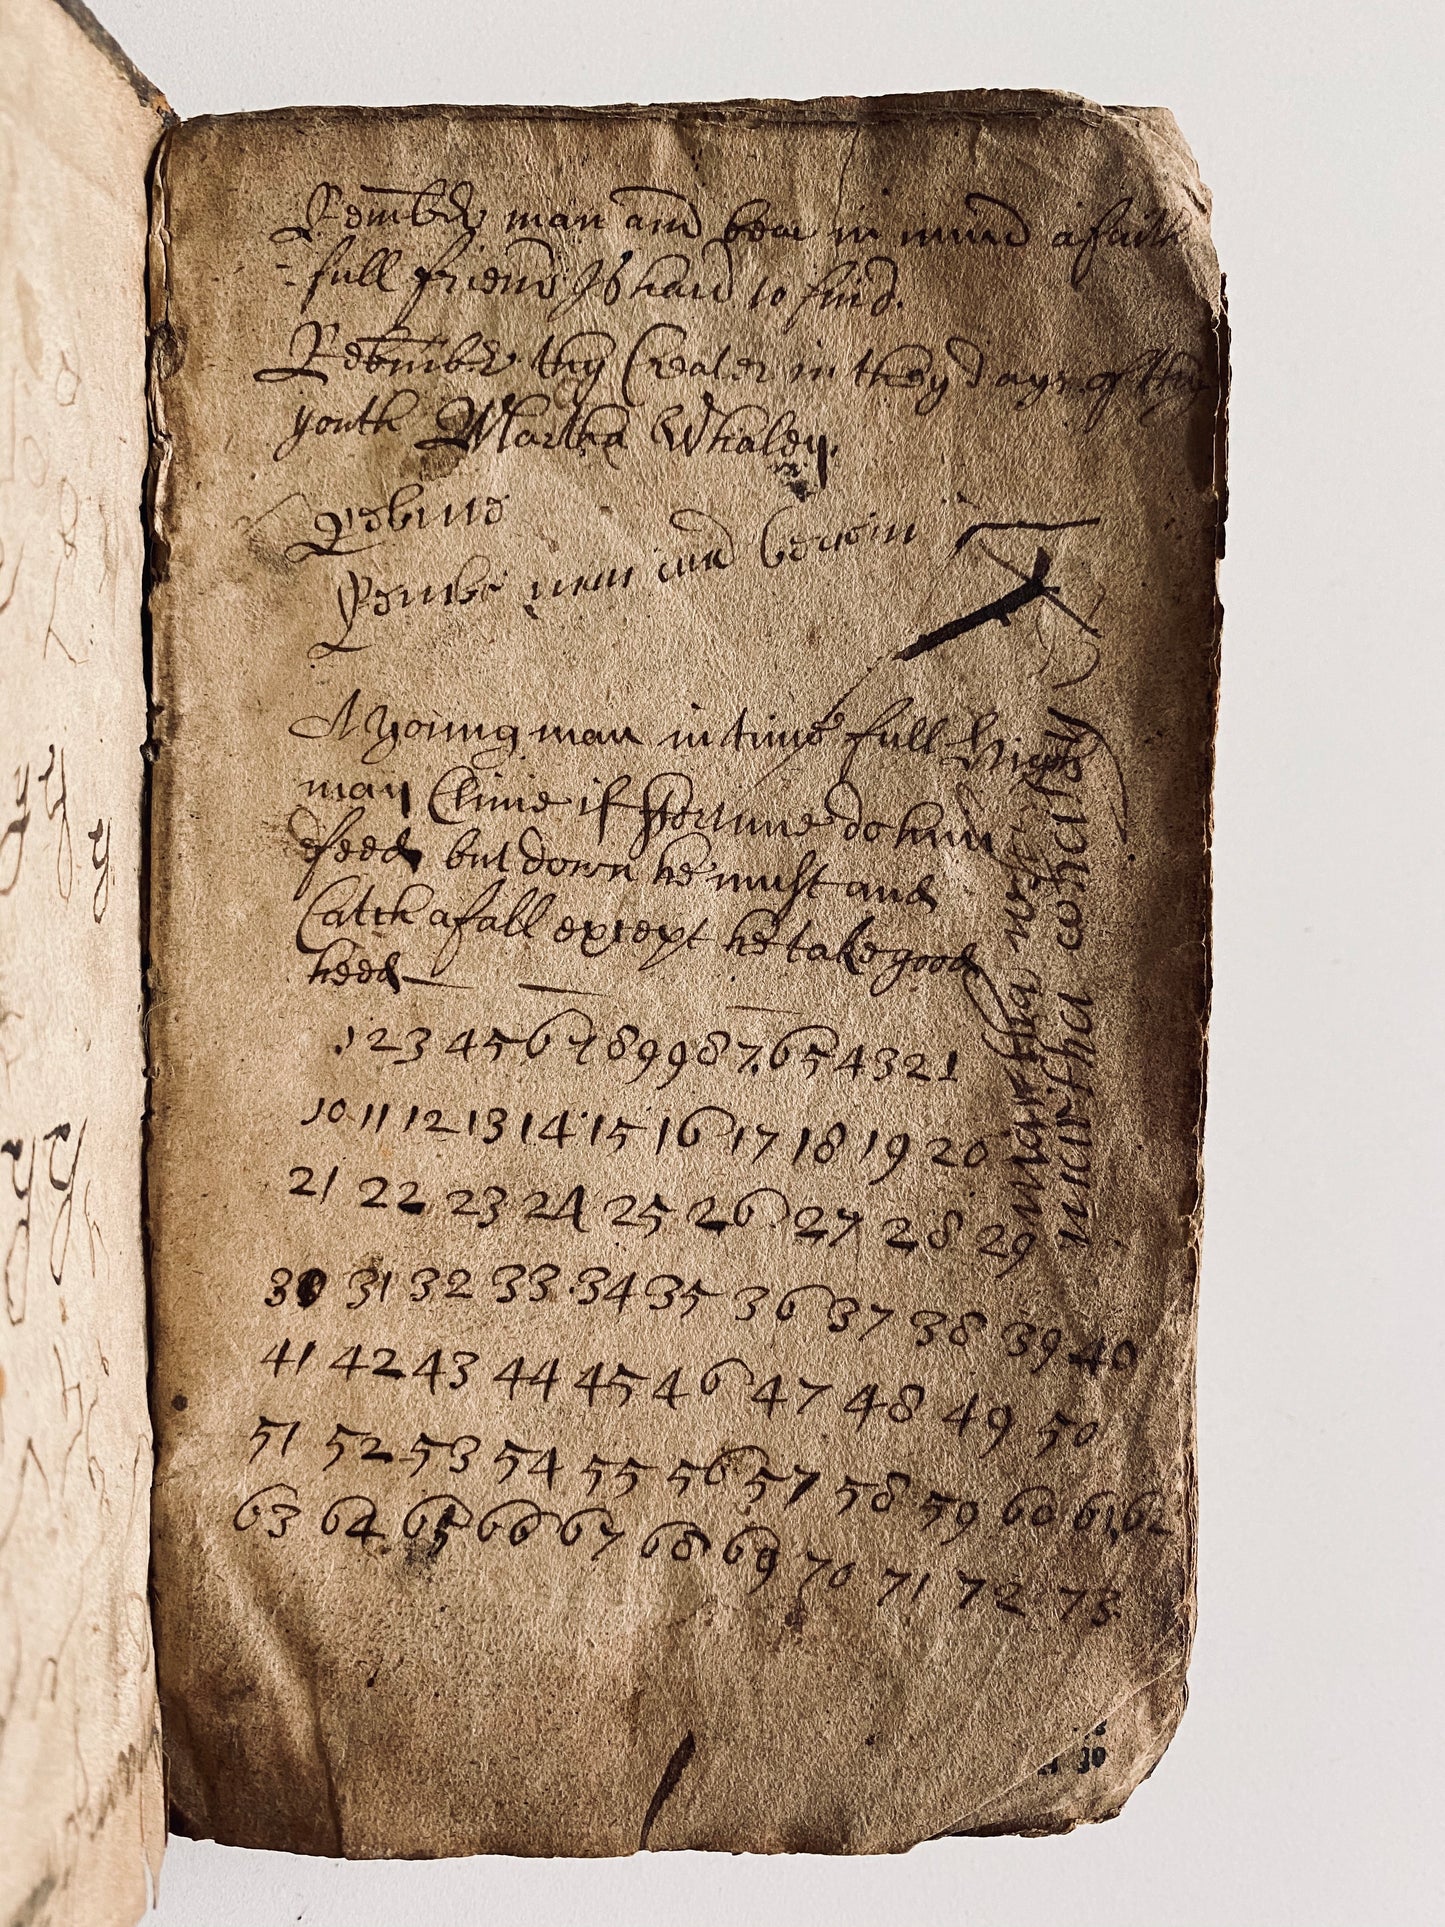 Rembr man and bear in mind a faith
full friend Is hard to find.
Rebmber thy Creater in they days of thy
youth Martha Whaley.
Rebme
Rembr man and bear in
A young man in time full high
may Clime if ffortune do him
feed but down he must and
Catch a fall except he take good
heed
1 2 3 4 5 6 7 8 9 9 8 7 6 5 4 3 2 1
10 11 12 13 14 15 16 17 18 19 20
21 22 23 24 25 26 27 28 29
30 31 32 33 34 35 36 37 38 39 40
41 42 43 44 45 46 47 48 49 50
51 52 53 54 55 56 57 58 59 60 61 62
63 64 65 66 67 68 69 70 71 72 73
martha
martha whaley
30